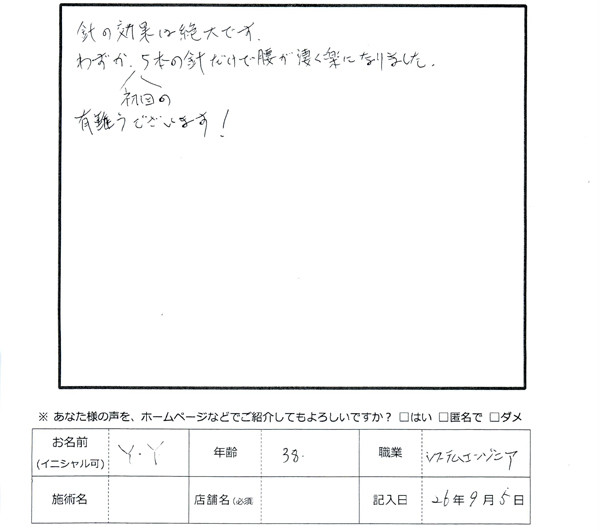 針の効果は絶大です.
わずか、5本の針だけで腰が凄く楽になりました.
初回の
有難うございます!
※ あなた様の声を、ホームページなどでご紹介してもよろしいですか? □はい □匿名で □ダメ
お名前 (イニシャル可) Y・Y 年齢 38. 職業 システムエンジニア
施術名 店舗名(必須 記入日 26年9月5日